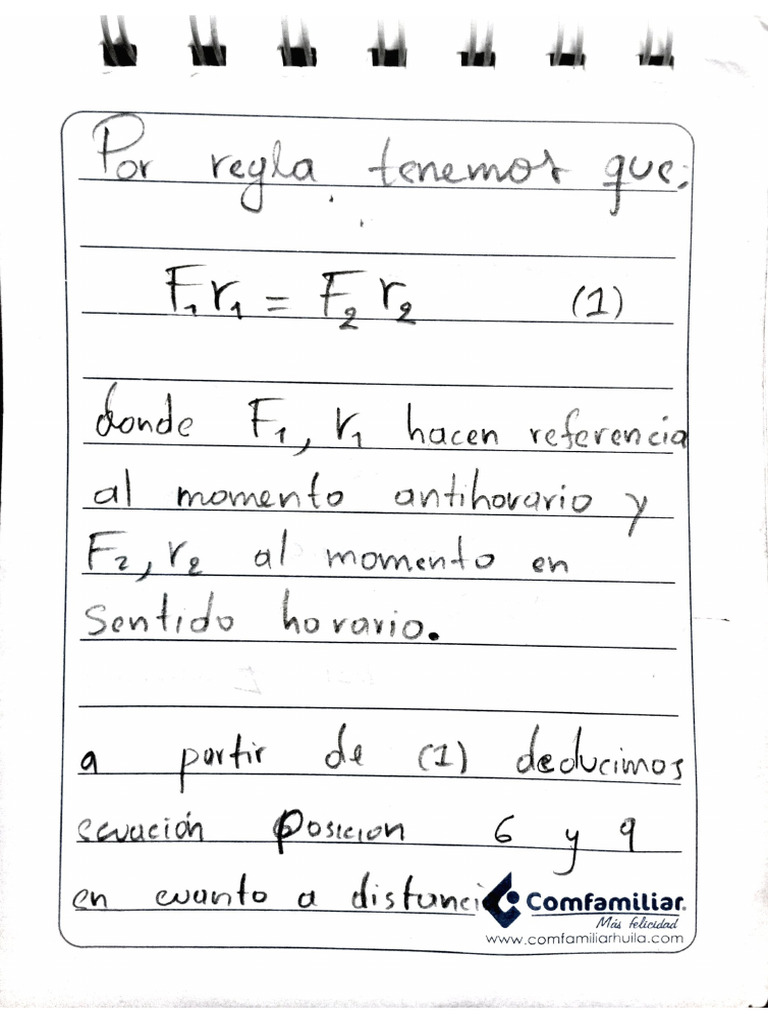 Por regla tenemos que:
F₁r₁ = F₂ r₂ (1)
donde F₁, r₁ hacen referencia
al momento antihorario y
F₂, r₂ al momento en
Sentido horario.
a partir de (1) deducimos
ecuación posicion 6 y 9
en cuanto a distanci
Comfamiliar
Más felicidad
www.comfamiliarhuila.com